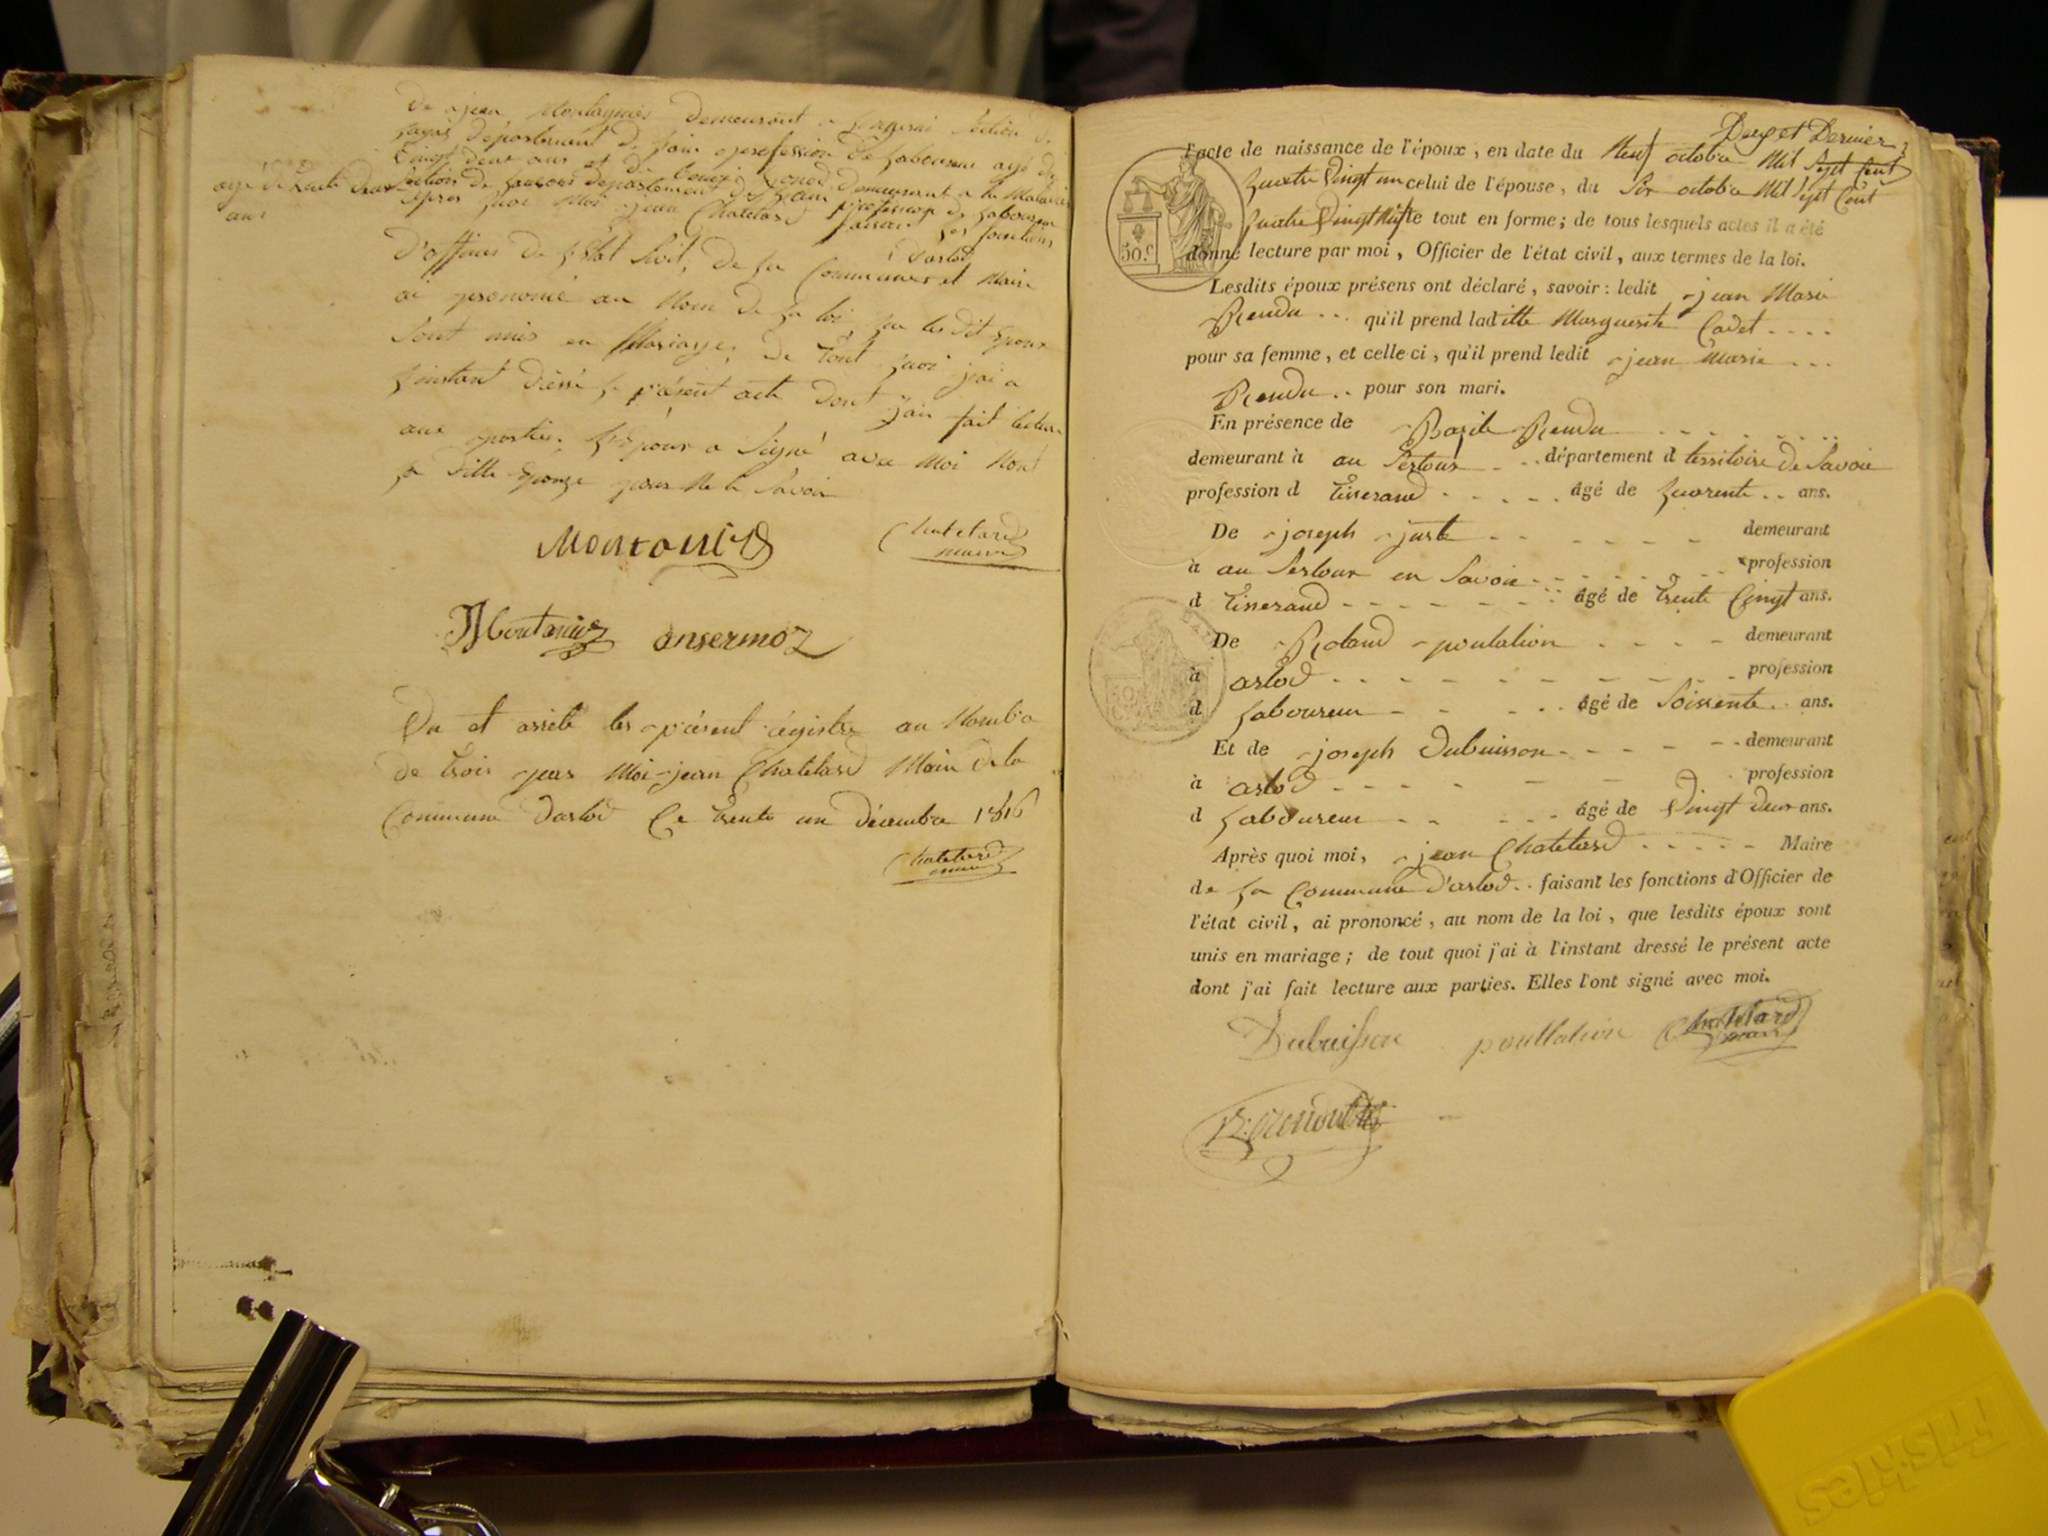 de jean Montagnier demeurant a section de
département de l'ain profession de laboureur agé de
vingt deux ans et de demeurant a la
agé de trente deux section de département de l'ain profession de laboureur
ans
après quoi Moi jean Chatelard faisant les fonctions
d'officier de l'état Civil, de la Commune d'arlod et Maire
ai prononcé au Nom de la loi que les dit époux
Sont unis en Mariage; de tout quoi j'ai a
l'instant dressé le présent acte dont j'ai fait lecture
aux parties. l'époux a Signé avec Moi Non
la ditte épouze pour Ne le Savoir
Chatelard
maire
ansermoz
Vu et arrêté les présent régistre au Nombre
de trois par Moi jean Chatelard Maire de la
Commune d'arlod Ce trente un décembre 1816
Chatelard
maire
Deux et Dernier
l'acte de naissance de l'époux, en date du Neuf octobre Mil Sept Cent
quatre Vingt un celui de l'épouse, du Six octobre Mil Sept Cent
quatre Vingt le tout en forme; de tous lesquels actes il a été
donné lecture par moi, Officier de l'état civil, aux termes de la loi.
50.c
Lesdits époux présens ont déclaré, savoir: ledit jean Marie
Rendu qu'il prend laditte Marguerite Cadet
pour sa femme, et celle ci, qu'il prend ledit jean Marie
Rendu pour son mari.
En présence de Bazile Rendu
demeurant à au Sertoux département d territoire de Savoie
profession d tisserand âgé de quarente ans.
De joseph juste demeurant
à au Sertoux en Savoie profession
d tisserand âgé de trente Cinqt ans.
De Roland poutalion demeurant
à arlod profession
d laboureur âgé de Soixente ans.
Et de joseph dubuisson demeurant
à arlod profession
d laboureur âgé de Vingt deux ans.
Après quoi moi, jean Chatelard Maire
de la Commune d'arlod faisant les fonctions d'Officier de
l'état civil, ai prononcé, au nom de la loi, que lesdits époux sont
unis en mariage; de tout quoi j'ai à l'instant dressé le présent acte
dont j'ai fait lecture aux parties. Elles l'ont signé avec moi.
Dubuisson poutlation Chatelard
maire
Friskies